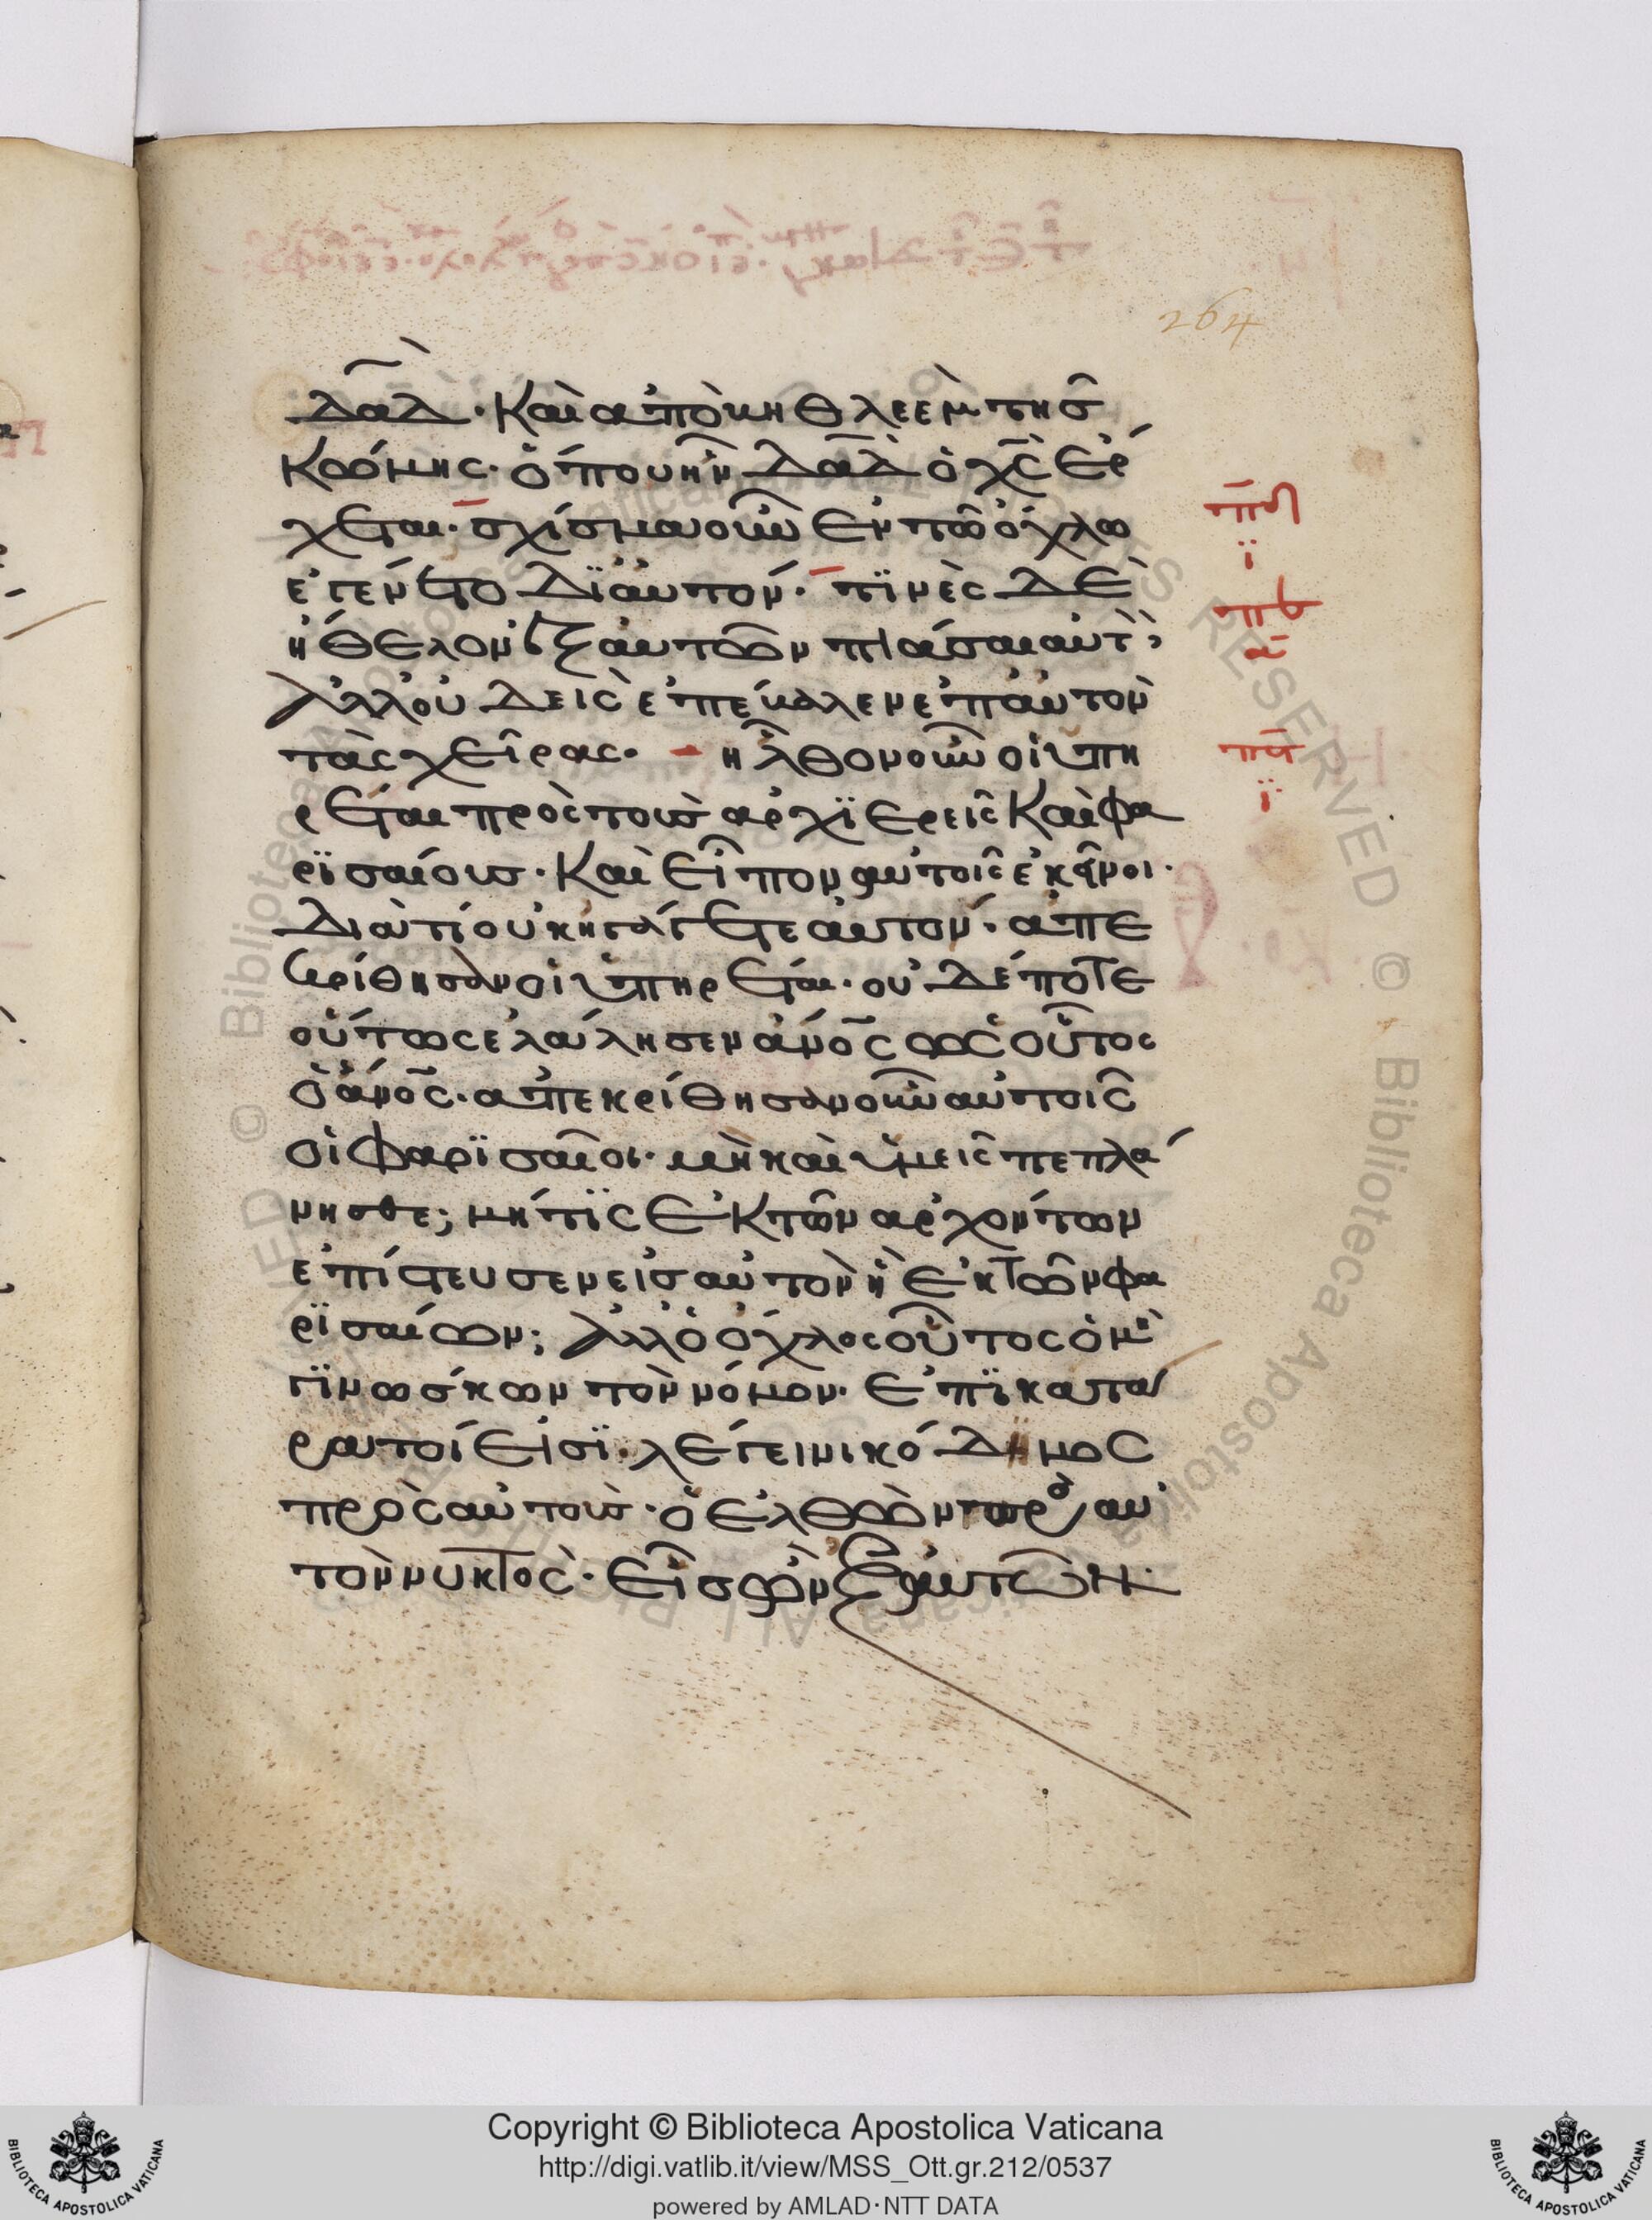 264
δα̅δ̀· καὶ ἀπὸ βηθλεὲμ τῆσ
κώμης· ὅπου ἦν δα̅δ̀ ὁ χ̅ς̀ ἔρ
χεται· σχίσμα οὖν ἐν τῶ ὄχλω
ἐγένετο δϊ αὐτόν· τϊνὲς δὲ
ἤθελον ἐξ αὐτῶν πιάσαι αὐτὸν
ἀλλ' οὐδεὶς ἐπέβαλεν ἐπ' αὐτὸν
τὰς χεῖρας· ἦλθον οὖν οἱ ὑπη
ρέται πρὸς τοὺς ἀρχϊερεῖς καὶ φα
ρϊσαίους· καὶ εἶπον αὐτοῖς ἐκεῖνοι·
διὰ τί οὐκ ἠγάγετε αὐτόν· ἀπε
κρίθησαν οἱ ὑπηρέται· οὐδέποτε
οὕτως ἐλάλησεν ἄ̅νος ὡς οὗτος
ὁ ἄ̅νος· ἀπεκρίθησαν οὖν αὐτοῖς
οἱ φαρϊσαῖοι· μὴ καὶ ὑμεῖς πεπλά
νησθε; μήτϊς ἐκ τῶν ἀρχόντων
ἐπίστευσεν εἰσ αὐτὸν ἢ ἐκ τῶν φα
ρϊσαίων; ἀλλ' ὁ ὄχλος οὗτος ὁ μὴ
γϊνώσκων τὸν νόμον· ἐπϊκατά
ρατοί εἰσϊ· λέγει νικόδημος
πρὸς αὐτοὺς· ὁ ἐλθὼν πρὸς αὐ
τὸν νυκτὸς· εἷσ ὢν ἐξ αὐτῶν·
π̅ϛ
ϊ
π̅ζ
α̅
π̅η
ϊ
Copyright © Biblioteca Apostolica Vaticana
http://digi.vatlib.it/view/MSS_Ott.gr.212/0537
powered by AMLAD·NTT DATA
BIBLIOTECA APOSTOLICA VATICANA
BIBLIOTECA APOSTOLICA VATICANA